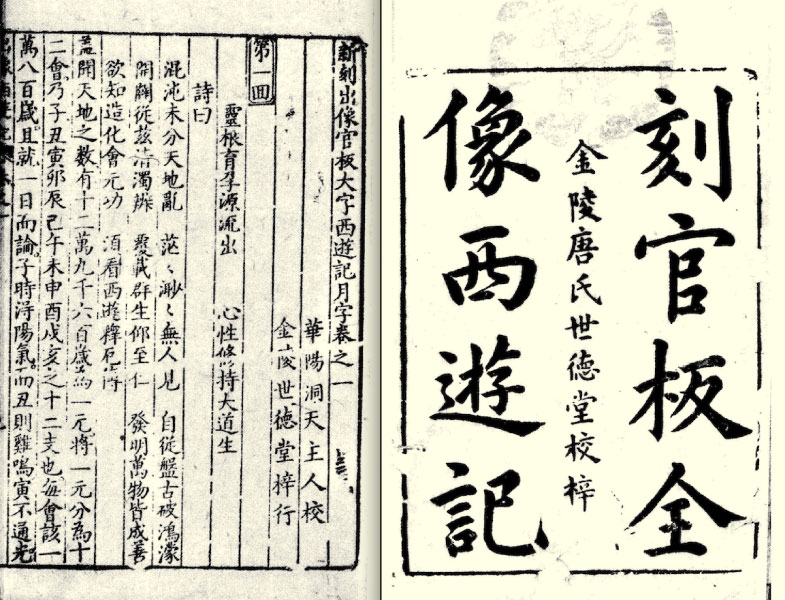 刻官板全
金陵唐氏世德堂校梓
像西遊記
新刻出像官板大字西遊記月字卷之一
華陽洞天主人校
金陵世德堂梓行
第一回
靈根育孕源流出 心性修持大道生
詩曰
混沌未分天地亂 茫〻渺〻無人見 自從盤古破鴻濛
開闢從茲清濁辨 覆載群生仰至仁 發明萬物皆成善
欲知造化會元功 須看西遊釋厄傳
蓋聞天地之數有十二萬九千六百歲為一元將一元分為十
二會乃子丑寅卯辰巳午未申酉戌亥之十二支也每會該一
萬八百歲且就一日而論子時得陽氣而丑則雞鳴寅不通光